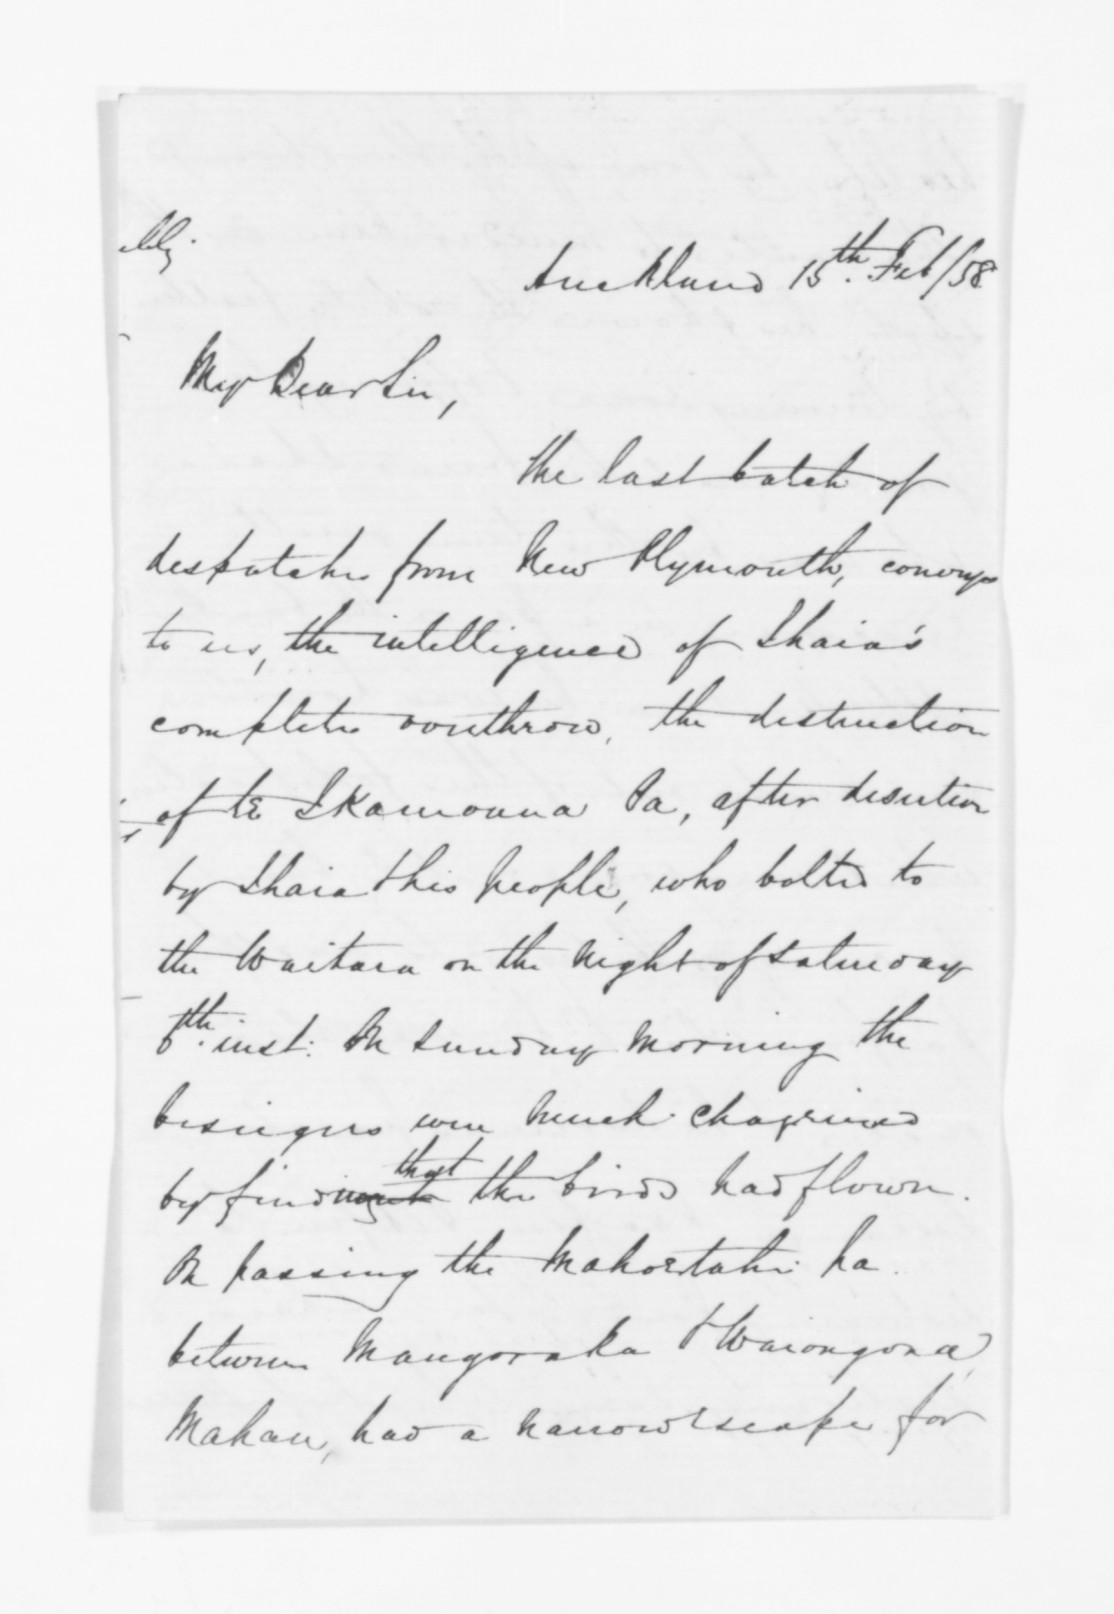 Auckland 15th. Feb/58
My Dear Sir,
the last batch of
despatches from New Plymouth, conveys
to us, the intelligence of Ihaia's
complete overthrow, the destruction
of te Ikamoana Pa, after desertion
by Ihaia & his people, who bolted to
the Waitara on the night of Saturday
6th. inst: On Sunday morning the
besiegers were much chagrined
by finding that the birds had flown.
On passing the Mahoetahi pa
between Mangoraka & Waiongona,
Mahau, had a narrow escape for